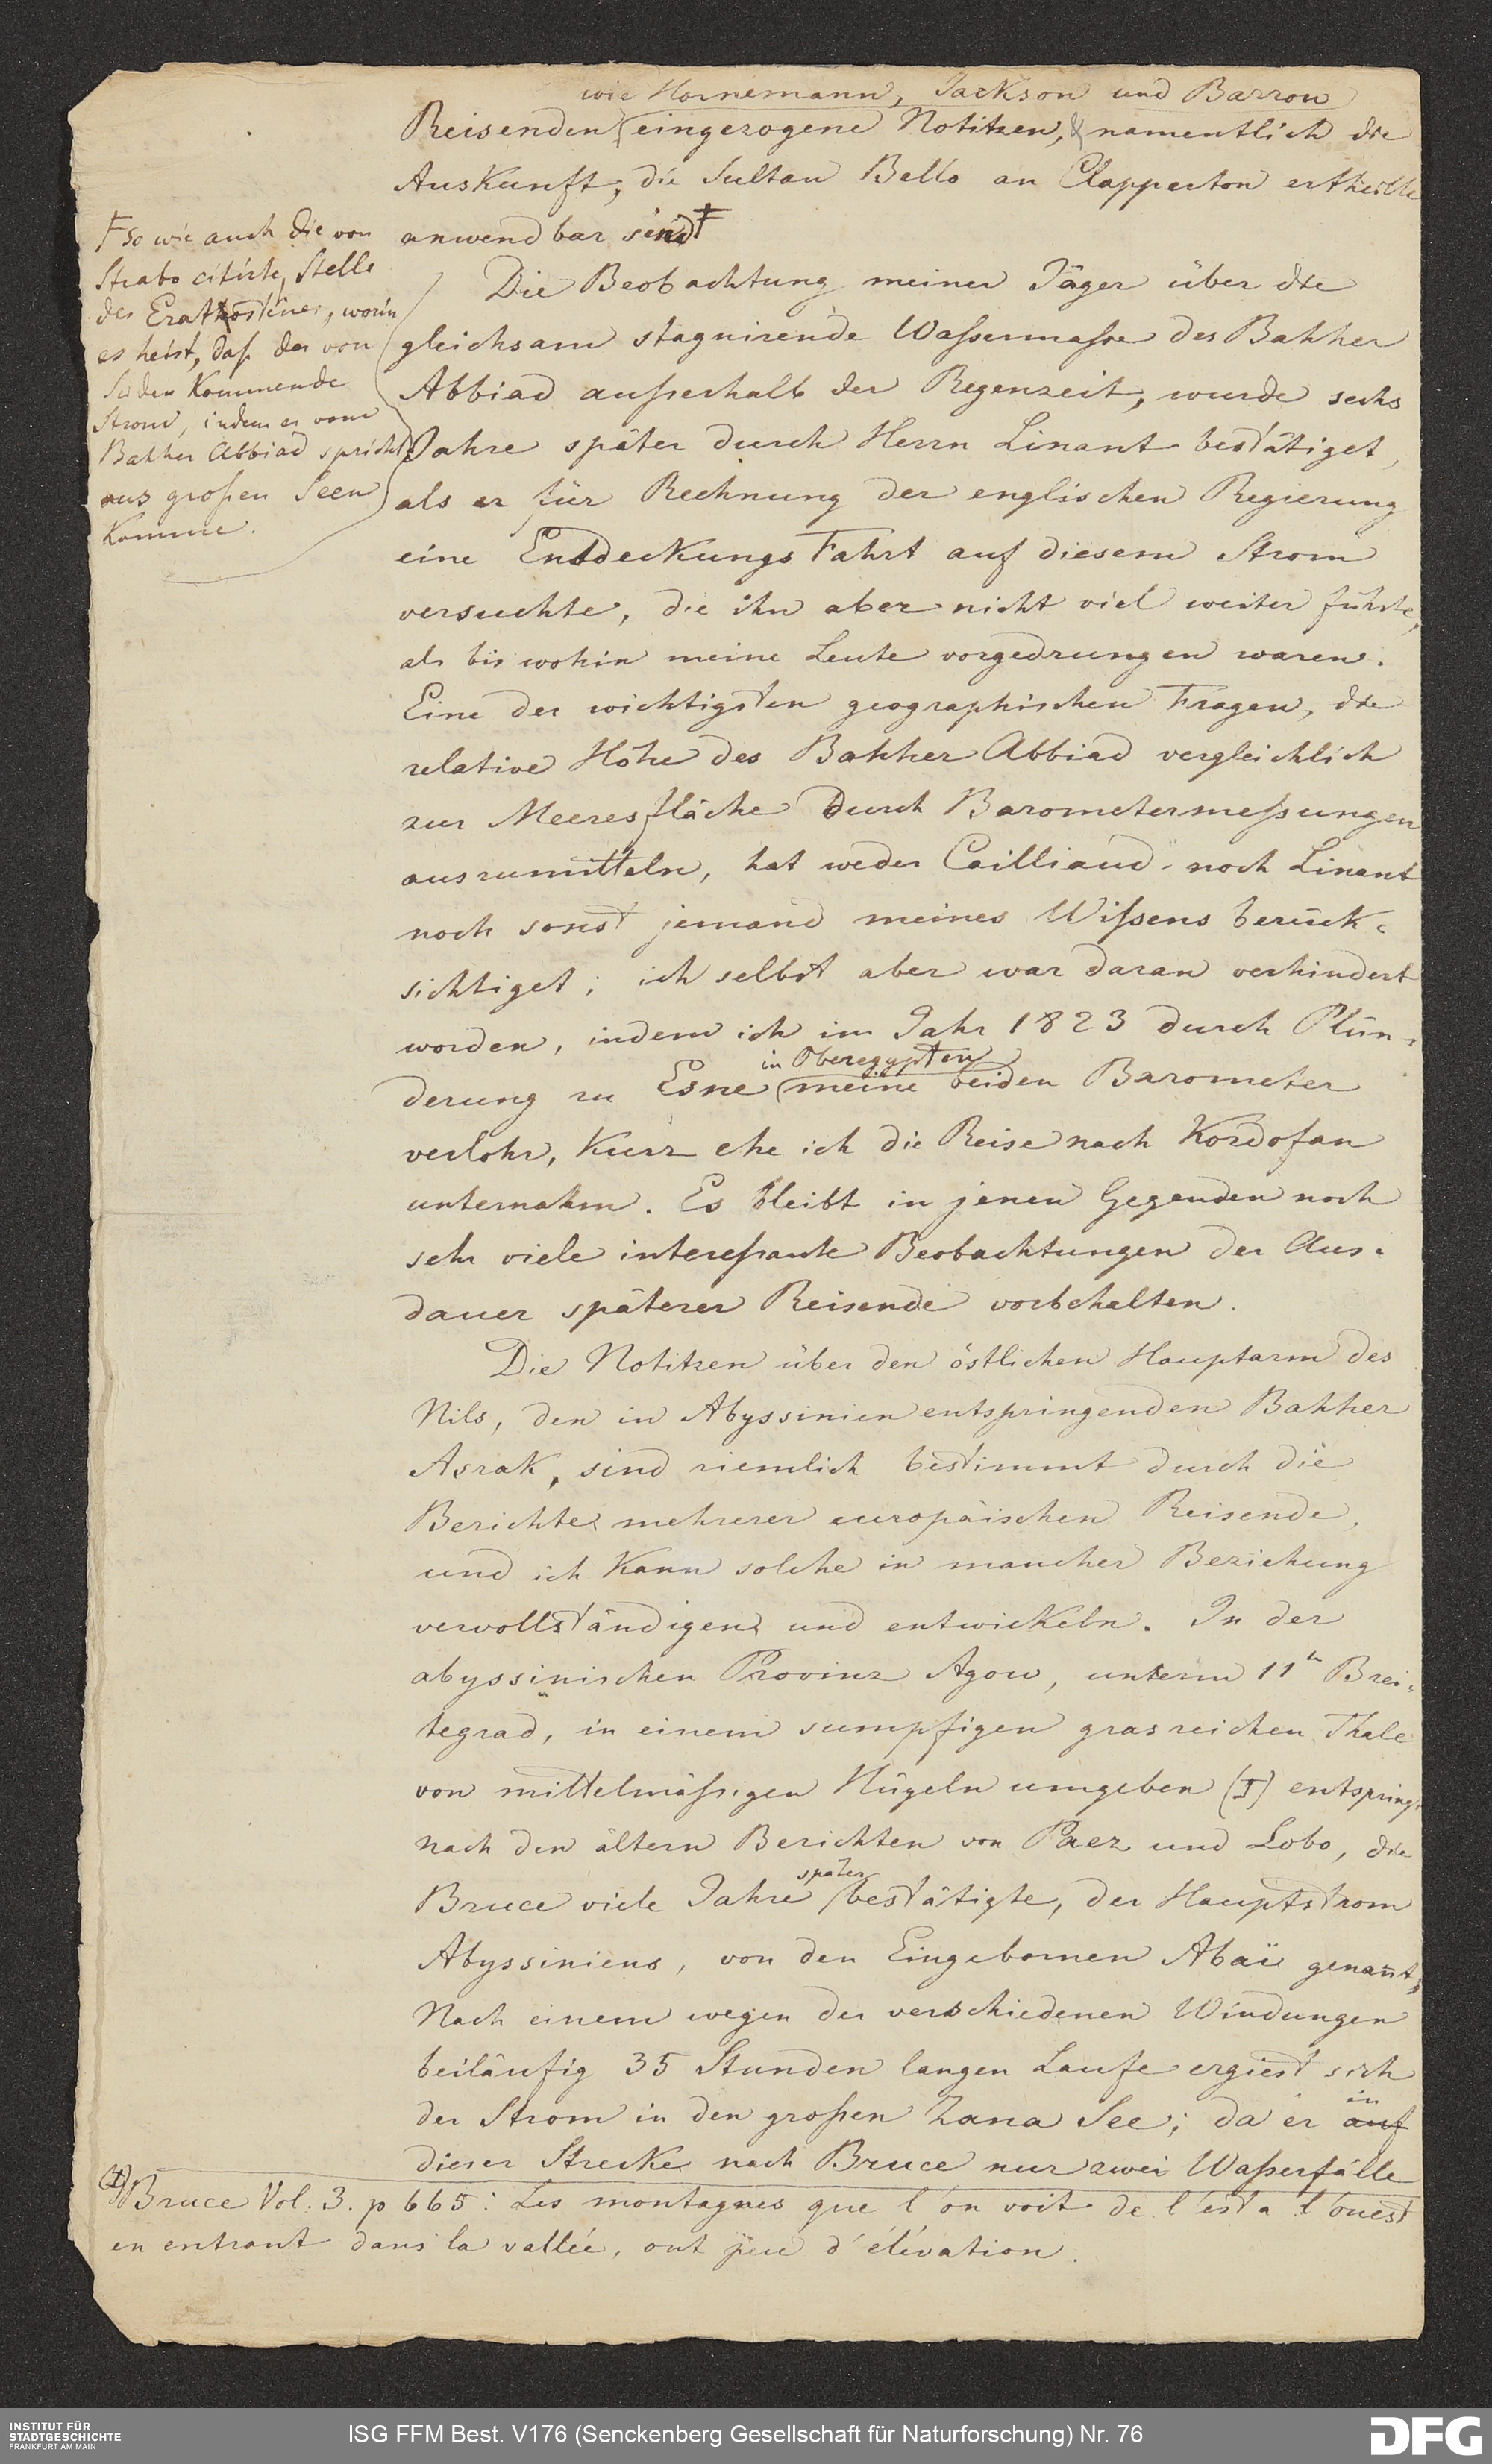 wie Hornemann, Jackson und Barrow
Reisenden eingezogene Notitzen, & namentlich die
Auskunft, die Sultan Bello an Clapperton ertheilte
anwendbar sind Ŧ
Ŧ so wie auch die von
Strabo citirte, Stelle
des Erathostènes, worin
es heist, daß der von
Süden kommende
Strom, indem er vom
Bahher Abbiad spricht
aus großen Seen
komme.
Die Beobachtung meiner Jäger über die
gleichsam stagnirende Waßermaße des Bahher
Abbiad außerhalb der Regenzeit, wurde sechs
Jahre später durch Herrn Linant bestätiget,
als er für Rechnung der englischen Regierung
eine Entdeckungs Fahrt auf diesem Strom
versuchte, die ihn aber nicht viel weiter führte,
als bis wohin meine Leute vorgedrungen waren.
Eine der wichtigsten geographischen Fragen, die
relative Höhe des Bahher Abbiad vergleichlich
zur Meeresfläche durch Barometermeßungen
auszumitteln, hat weder Cailliaud noch Linant
noch sonst jemand meines Wißens berück-
sichtiget; ich selbst aber war daran verhindert
worden, indem ich im Jahr 1823 durch Plün-
in Oberegypten
derung zu Esne meine beiden Barometer
verlohr, kurz ehe ich die Reise nach Kordofan
unternahm. Es bleibt in jenen Gegenden noch
sehr viele intereßante Beobachtungen der Aus-
dauer späterer Reisende vorbehalten.
Die Notitzen über den östlichen Hauptarm des
Nils, den in Abyssinien entspringenden Bahher
Asrak, sind ziemlich bestimmt durch die
Berichte mehrerer europäischen Reisende,
und ich kann solche in mancher Beziehung
vervollständigen und entwickeln. In der
abyssinischen Provinz Agow, unterm 11n Brei-
tegrad, in einem sumpfigen grasreichen Thale
von mittelmäßigen Hügeln umgeben (I) entspringt
nach den ältern Berichten von Paez und Lobo, die
später
Bruce viele Jahre bestätigte, der Hauptstrom
Abyssiniens, von den Eingebornen Abaï genannt;
Nach einem wegen der verschiedenen Windungen
beiläufig 35 Stunden langen Laufe ergiest sich
der Strom in den großen Zana See; da er auf
in
dieser Strecke nach Bruce nur zwei Waßerfälle
(I) Bruce Vol. 3. p 665: Les montagnes que l'on voit de l'est a l'ouest
en entrant dans la vallée, ont peu d'élévation.
INSTITUT FÜR
STADTGESCHICHTE
FRANKFURT AM MAIN
ISG FFM Best. V176 (Senckenberg Gesellschaft für Naturforschung) Nr. 76
DFG